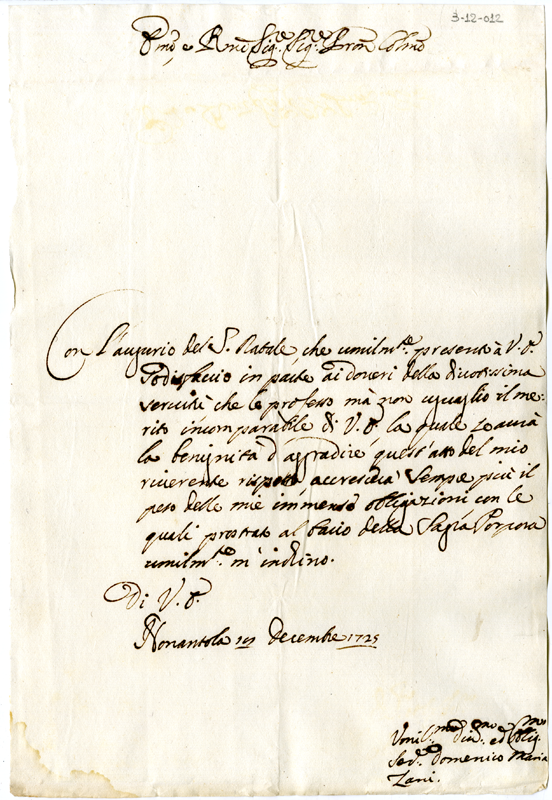 3-12-012
Emo e Rmo Sig.e Sig.e Pron Colmo
Con l'augurio del S. Natale che umilmte. presento à V. E.
sodisfaccio in parte ai doveri della divotissima
servitù che le professo mà non uguaglio il me:
rito incomparabile di V. E. la quale se avrà
la benignità d'aggradire quest'atto del mio
riverente rispetto accrescerà sempre più il
peso delle mie immense obligazioni con le
quali prostrato al bacio della Sagra Porpora
umilmte. m'inchino.
Di V. E.
Nonantola decembre 1725
Umil.mo div.mo ed oblig.mo
Sed.e Domenico Maria
Zani.